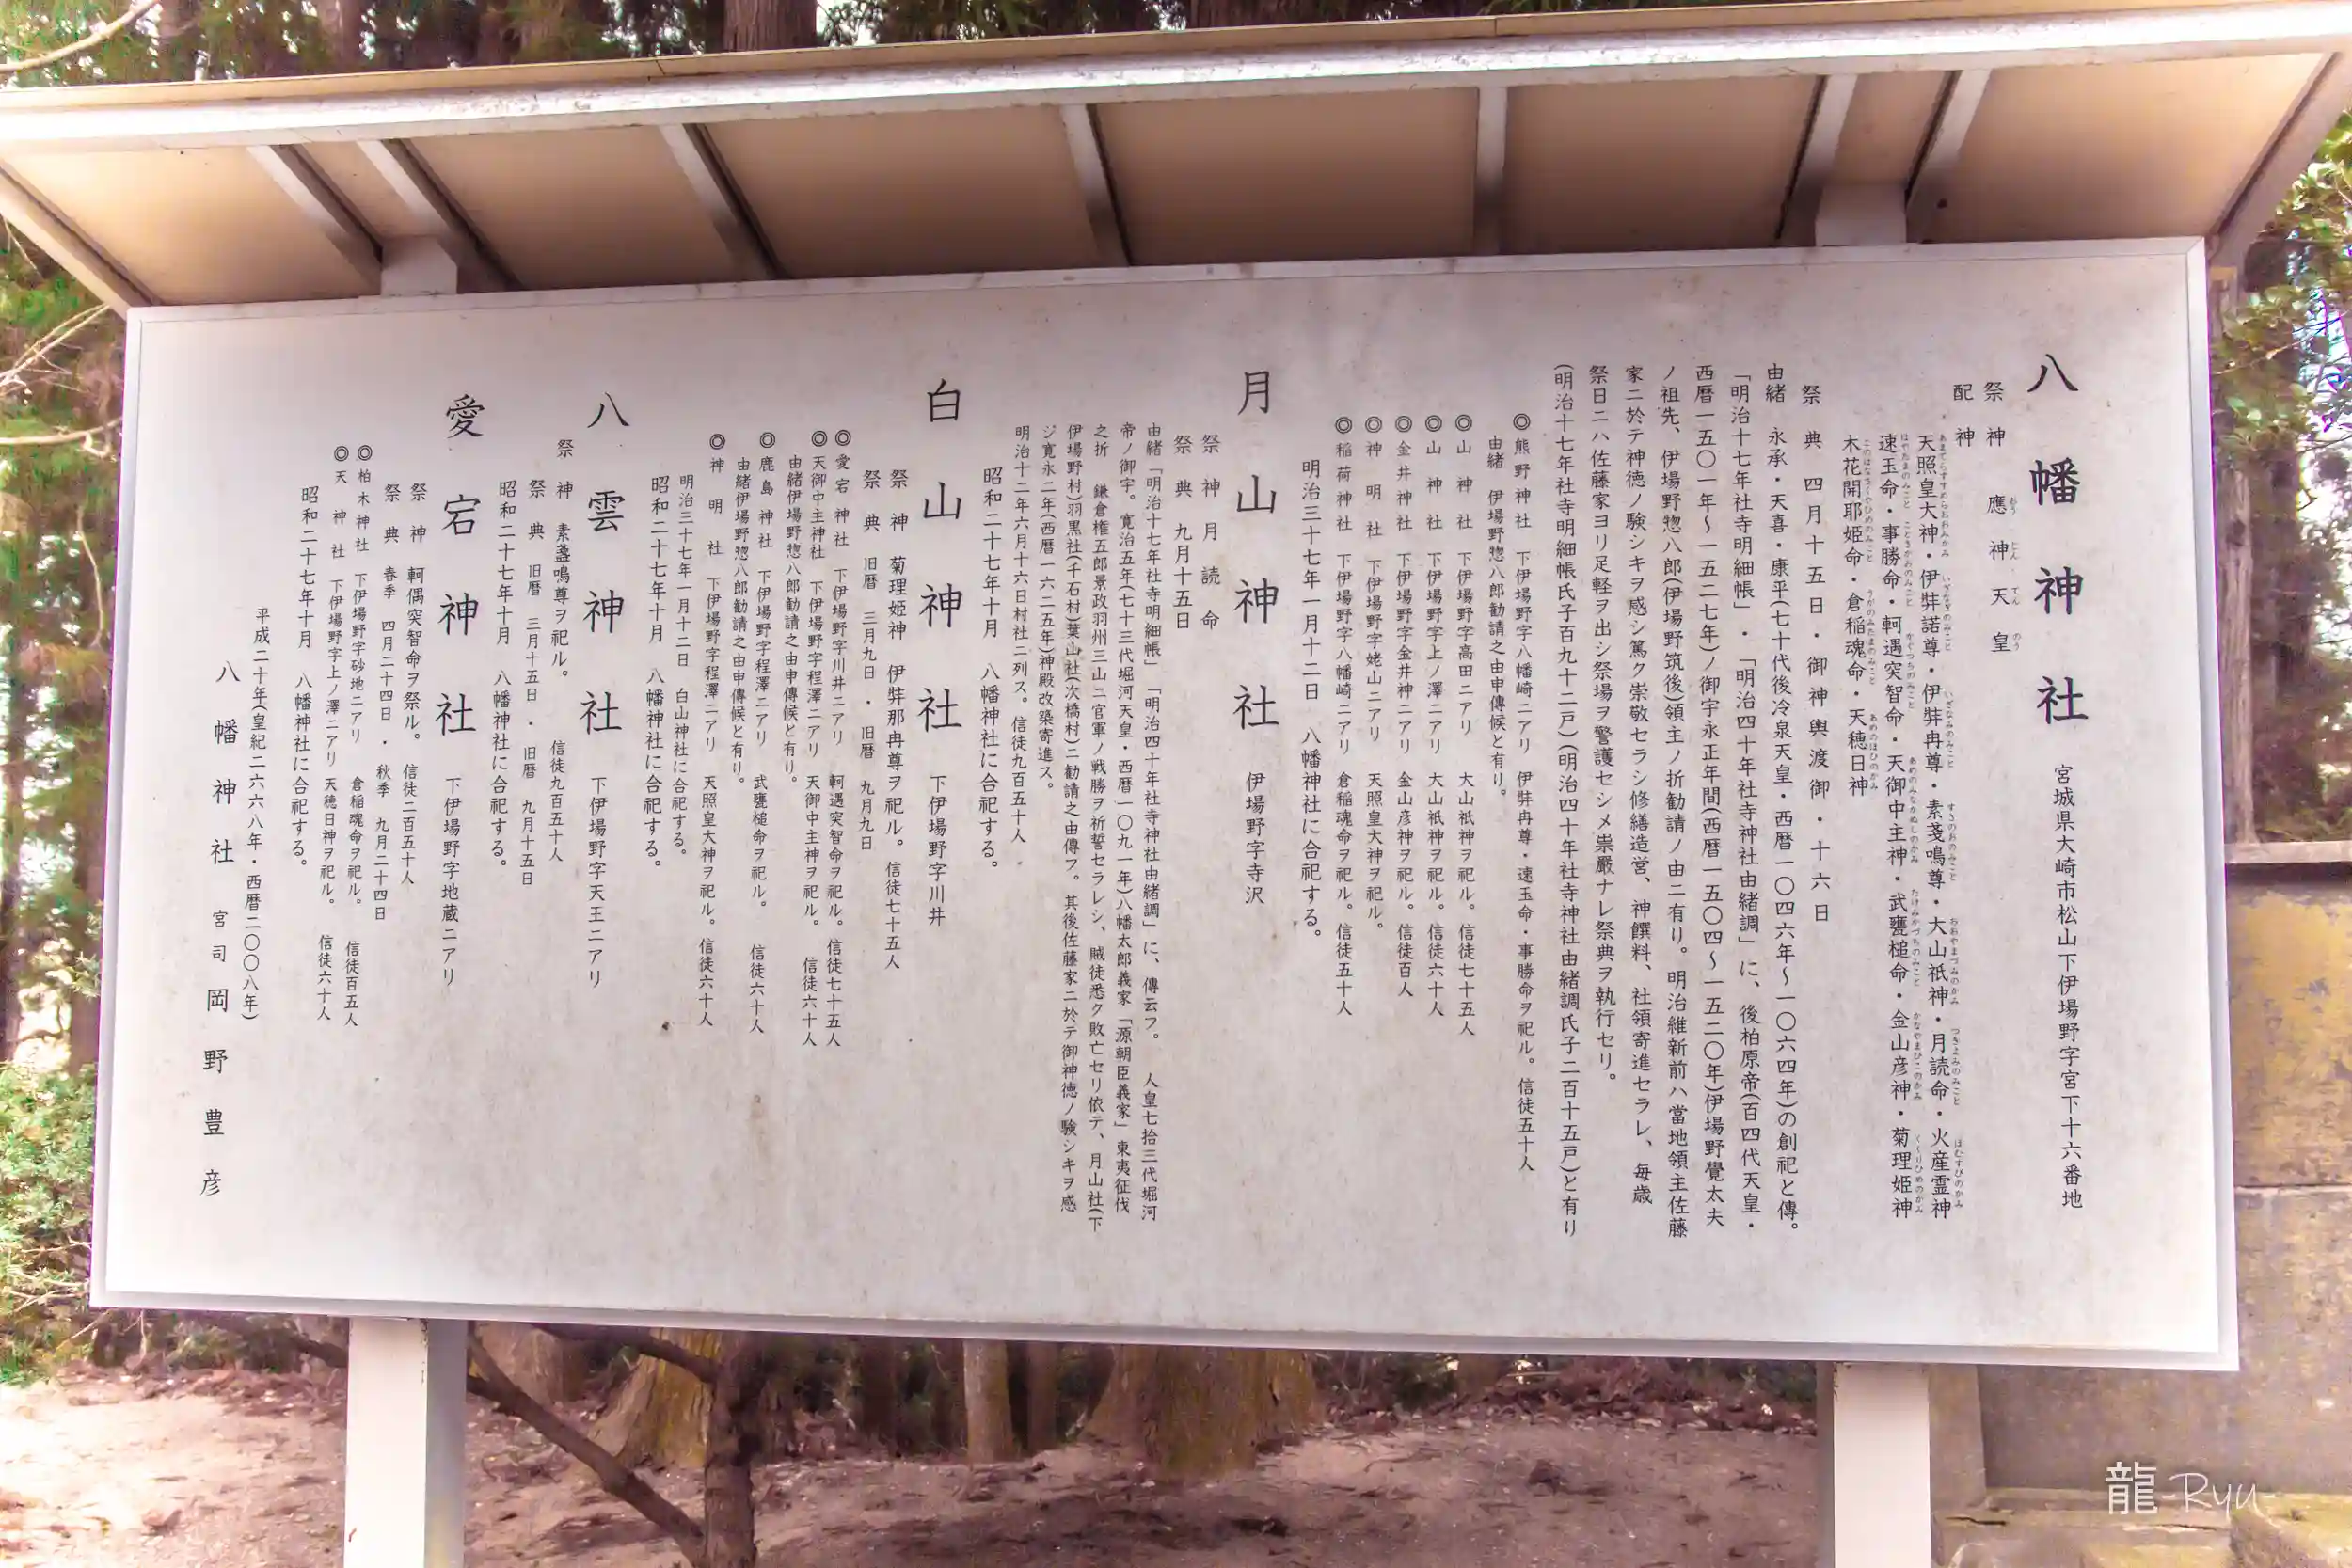 八幡神社 宮城県大崎市松山下伊場野字宮下十六番地
祭神 應神天皇
配神
天照皇大神・伊弉諾尊・伊弉冉尊・素戔鳴尊・大山祇神・月読命・火産霊神
速玉命・事勝命・軻遇突智命・天御中主神・武甕槌命・金山彦神・菊理姫神
木花開耶姫命・倉稲魂命・天穂日神
祭典 四月十五日・御神輿渡御・十六日
由緒 永承・天喜・康平(七十代後冷泉天皇・西暦一〇四六年〜一〇六四年)の創祀と傳。
「明治十七年社寺明細帳」・「明治四十年社寺神社由緒調」に、後柏原帝(百四代天皇・
西暦一五〇一年〜一五二七年)ノ御宇永正年間(西暦一五〇四〜一五二〇年)伊場野覺太夫
ノ祖先、伊場野惣八郎(伊場野筑後)領主ノ折勧請ノ由ニ有り。明治維新前ハ當地領主佐藤
家ニ於テ神徳ノ験シキヲ感シ篤ク崇敬セラシ修繕造営、神饌料、社領寄進セラレ、毎歳
祭日ニハ佐藤家ヨリ足軽ヲ出シ祭場ヲ警護セシメ崇嚴ナレ祭典ヲ執行セリ。
(明治十七年社寺明細帳氏子百九十二戸)(明治四十年社寺神社由緒調氏子二百十五戸)と有り
◎熊野神社 下伊場野字八幡崎ニアリ 伊弉冉尊・速玉命・事勝命ヲ祀ル。信徒五十人
由緒 伊場野惣八郎勧請之由申傳候と有り。
◎山神社 下伊場野字高田ニアリ 大山祇神ヲ祀ル。信徒七十五人
◎山神社 下伊場野字上ノ澤ニアリ 大山祇神ヲ祀ル。信徒六十人
◎金井神社 下伊場野字金井神ニアリ 金山彦神ヲ祀ル。信徒百人
◎神明社 下伊場野字姥山ニアリ 天照皇大神ヲ祀ル。
◎稲荷神社 下伊場野字八幡崎ニアリ 倉稲魂命ヲ祀ル。信徒五十人
明治三十七年一月十二日 八幡神社に合祀する。
月山神社 伊場野字寺沢
祭神 月読命
祭典 九月十五日
由緒「明治十七年社寺明細帳」「明治四十年社寺神社由緒調」に、傳云フ。 人皇七拾三代堀河
帝ノ御宇。寛治五年(七十三代堀河天皇・西暦一〇九一年)八幡太郎義家「源朝臣義家」東夷征伐
之折 鎌倉権五郎景政羽州三山ニ官軍ノ戦勝ヲ祈誓セラレシ、賊徒悉ク敗亡セリ依テ、月山社(下
伊場野村)羽黒社(千石村)葉山社(次橋村)ニ勧請之由傳フ。其後佐藤家ニ於テ御神徳ノ験シキヲ感
ジ寛永二年(西暦一六二五年)神殿改築寄進ス。
明治十二年六月十六日村社ニ列ス。信徒九百五十人
昭和二十七年十月 八幡神社に合祀する。
白山神社 下伊場野字川井
祭神 菊理姫神 伊弉那冉尊ヲ祀ル。信徒七十五人
祭典 旧暦 三月九日・旧暦 九月九日
◎愛宕神社 下伊場野字川井ニアリ 軻遇突智命ヲ祀ル。信徒七十五人
◎天御中主神社 下伊場野字程澤ニアリ 天御中主神ヲ祀ル。 信徒六十人
由緒伊場野惣八郎勧請之由申傳候と有り。
◎鹿島神社 下伊場野字程澤ニアリ 武甕槌命ヲ祀ル。 信徒六十人
由緒伊場野惣八郎勧請之由申傳候と有り。
◎神明社 下伊場野字程澤ニアリ 天照皇大神ヲ祀ル。信徒六十人
明治三十七年一月十二日 白山神社に合祀する。
昭和二十七年十月 八幡神社に合祀する。
八雲神社 下伊場野字天王ニアリ
祭神 素盞鳴尊ヲ祀ル。 信徒九百五十人
祭典 旧暦 三月十五日・旧暦 九月十五日
昭和二十七年十月 八幡神社に合祀する。
愛宕神社 下伊場野字地蔵ニアリ
祭神 軻偶突智命ヲ祭ル。 信徒二百五十人
祭典 春季 四月二十四日・秋季 九月二十四日
◎柏木神社 下伊場野字砂地ニアリ 倉稲魂命ヲ祀ル。 信徒百五人
◎天神社 下伊場野字上ノ澤ニアリ 天穂日神ヲ祀ル。 信徒六十人
昭和二十七年十月 八幡神社に合祀する。
平成二十年(皇紀二六六八年・西暦二〇〇八年)
八幡神社 宮司 岡野豊彦
龍-Ryu-